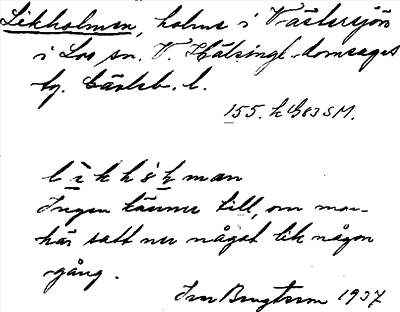 Likholmen, holme i Västersjön
i Los sn. V. Hälsingl. domsagas
tg. Gävleb. l.
155. h G83 SM.
l i k h å l man
Ingen känner till, om man
här satt ner något lik någon
gång.
Ivar Bengtsson 1937